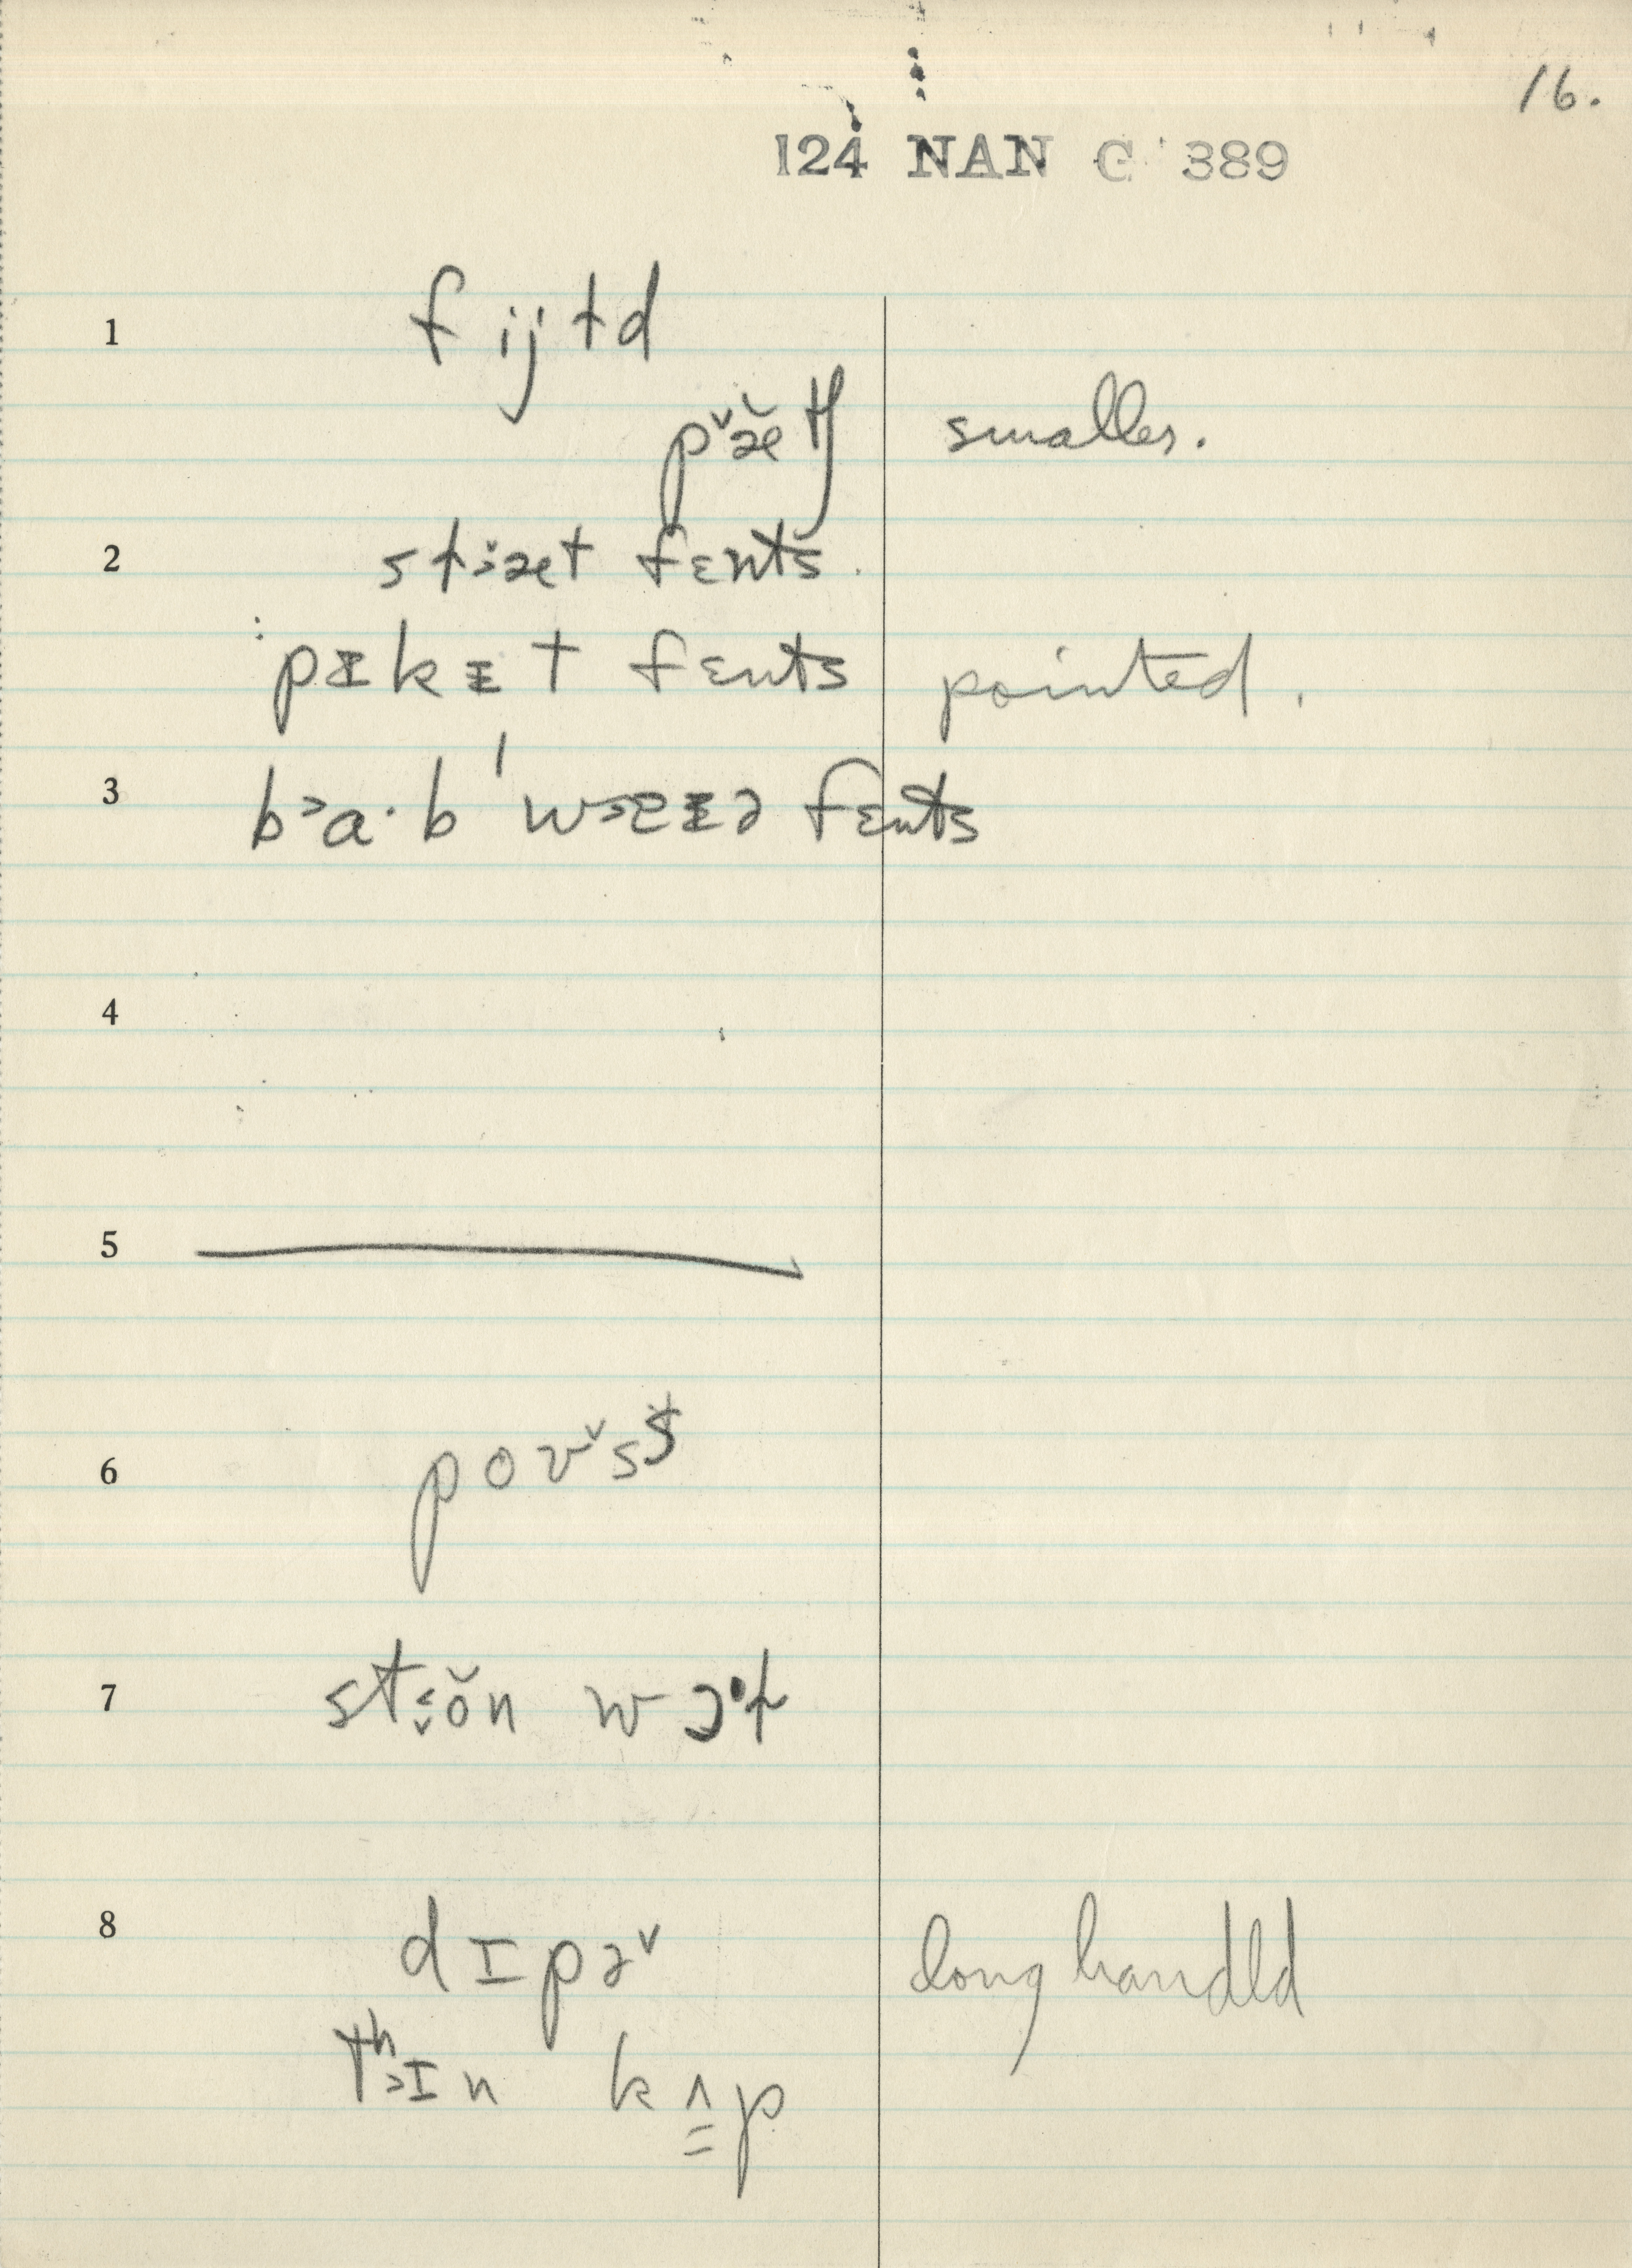 16.
124 NAN C 389
1 f ij ɫ d
pˇæ̆ tʃ smaller.
2 stæt fɛnts.
pɪkɪt fɛnts pointed.
3 b a· b ' w fɛnts
4
5
6 p o ʊˇ s t
7 st ŏ n w ɔ k
8 d ɪ p əˇ long handld
tʰ ɪ n k ʌ p